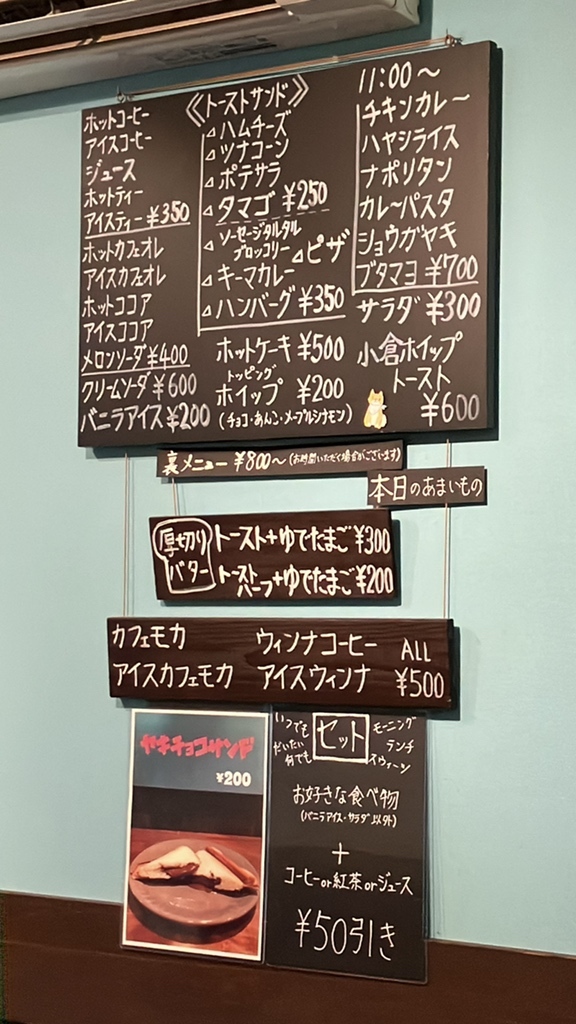 ホットコーヒー
アイスコーヒー
ジュース
ホットティー
アイスティー ¥350
ホットカフェオレ
アイスカフェオレ
ホットココア
アイスココア
メロンソーダ ¥400
クリームソーダ ¥600
バニラアイス ¥200
《トーストサンド》
⊿ハムチーズ
⊿ツナコーン
⊿ポテサラ
⊿タマゴ ¥250
⊿ソーセージタルタル
ブロッコリー ⊿ピザ
⊿キーマカレー
⊿ハンバーグ ¥350
ホットケーキ ¥500
トッピング
ホイップ ¥200
(チョコ・あんこ・メープルシナモン)
11:00〜
チキンカレー
ハヤシライス
ナポリタン
カレーパスタ
ショウガヤキ
ブタマヨ ¥700
サラダ ¥300
小倉ホイップ
トースト
¥600
裏メニュー ¥800〜(お時間いただく場合がございます)
本日のあまいもの
厚切り
バター
トースト+ゆでたまご ¥300
トースト
ハーフ+ゆでたまご ¥200
カフェモカ ウィンナコーヒー ALL
アイスカフェモカ アイスウィンナ ¥500
ヤキチョコサンド
¥200
いつでも
だいたい
何でも
セット
モーニング
ランチ
スウィーツ
お好きな食べ物
(バニラアイス・サラダ以外)
+
コーヒーor紅茶orジュース
¥50引き